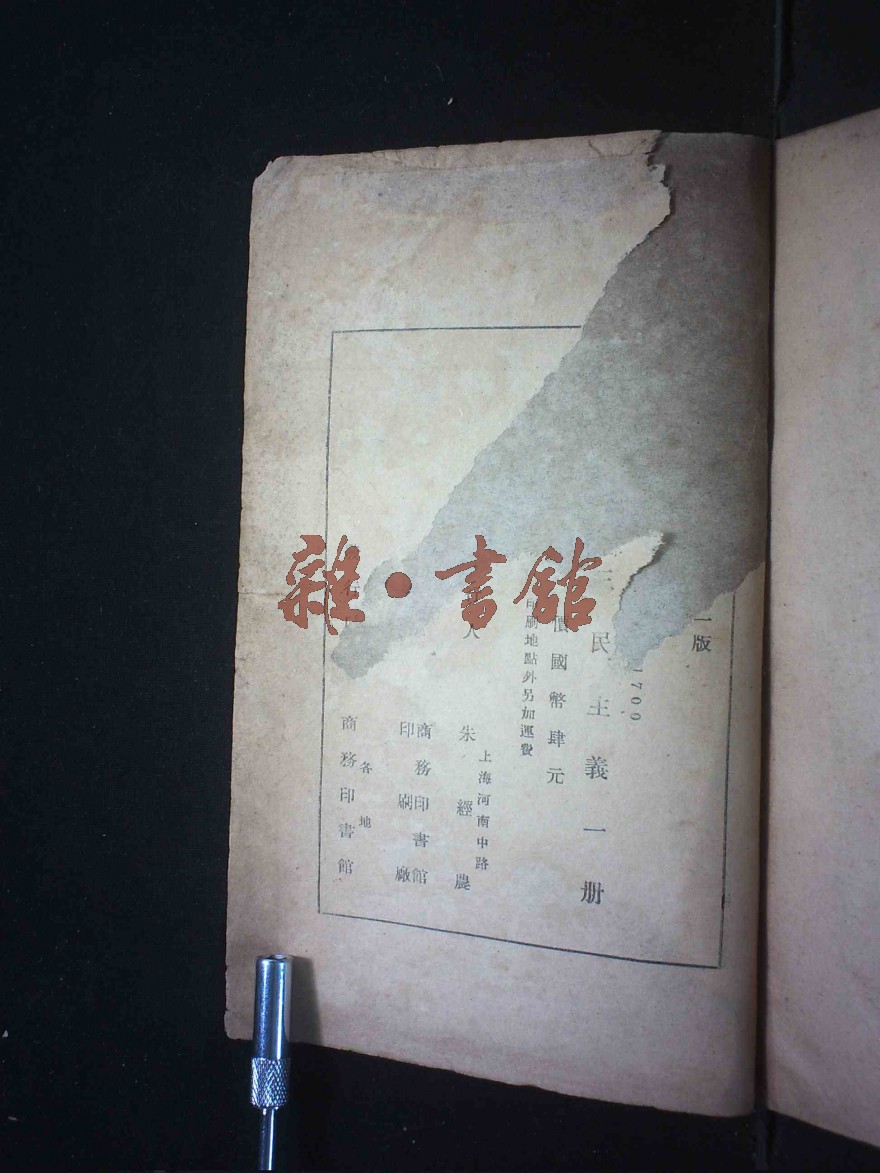 一版
700
三民主義一册
價國幣肆元
印刷地點外另加運費
上海河南中路
人 朱經農
商務印書館
印刷廠
各地
商務印書館
雜·書館